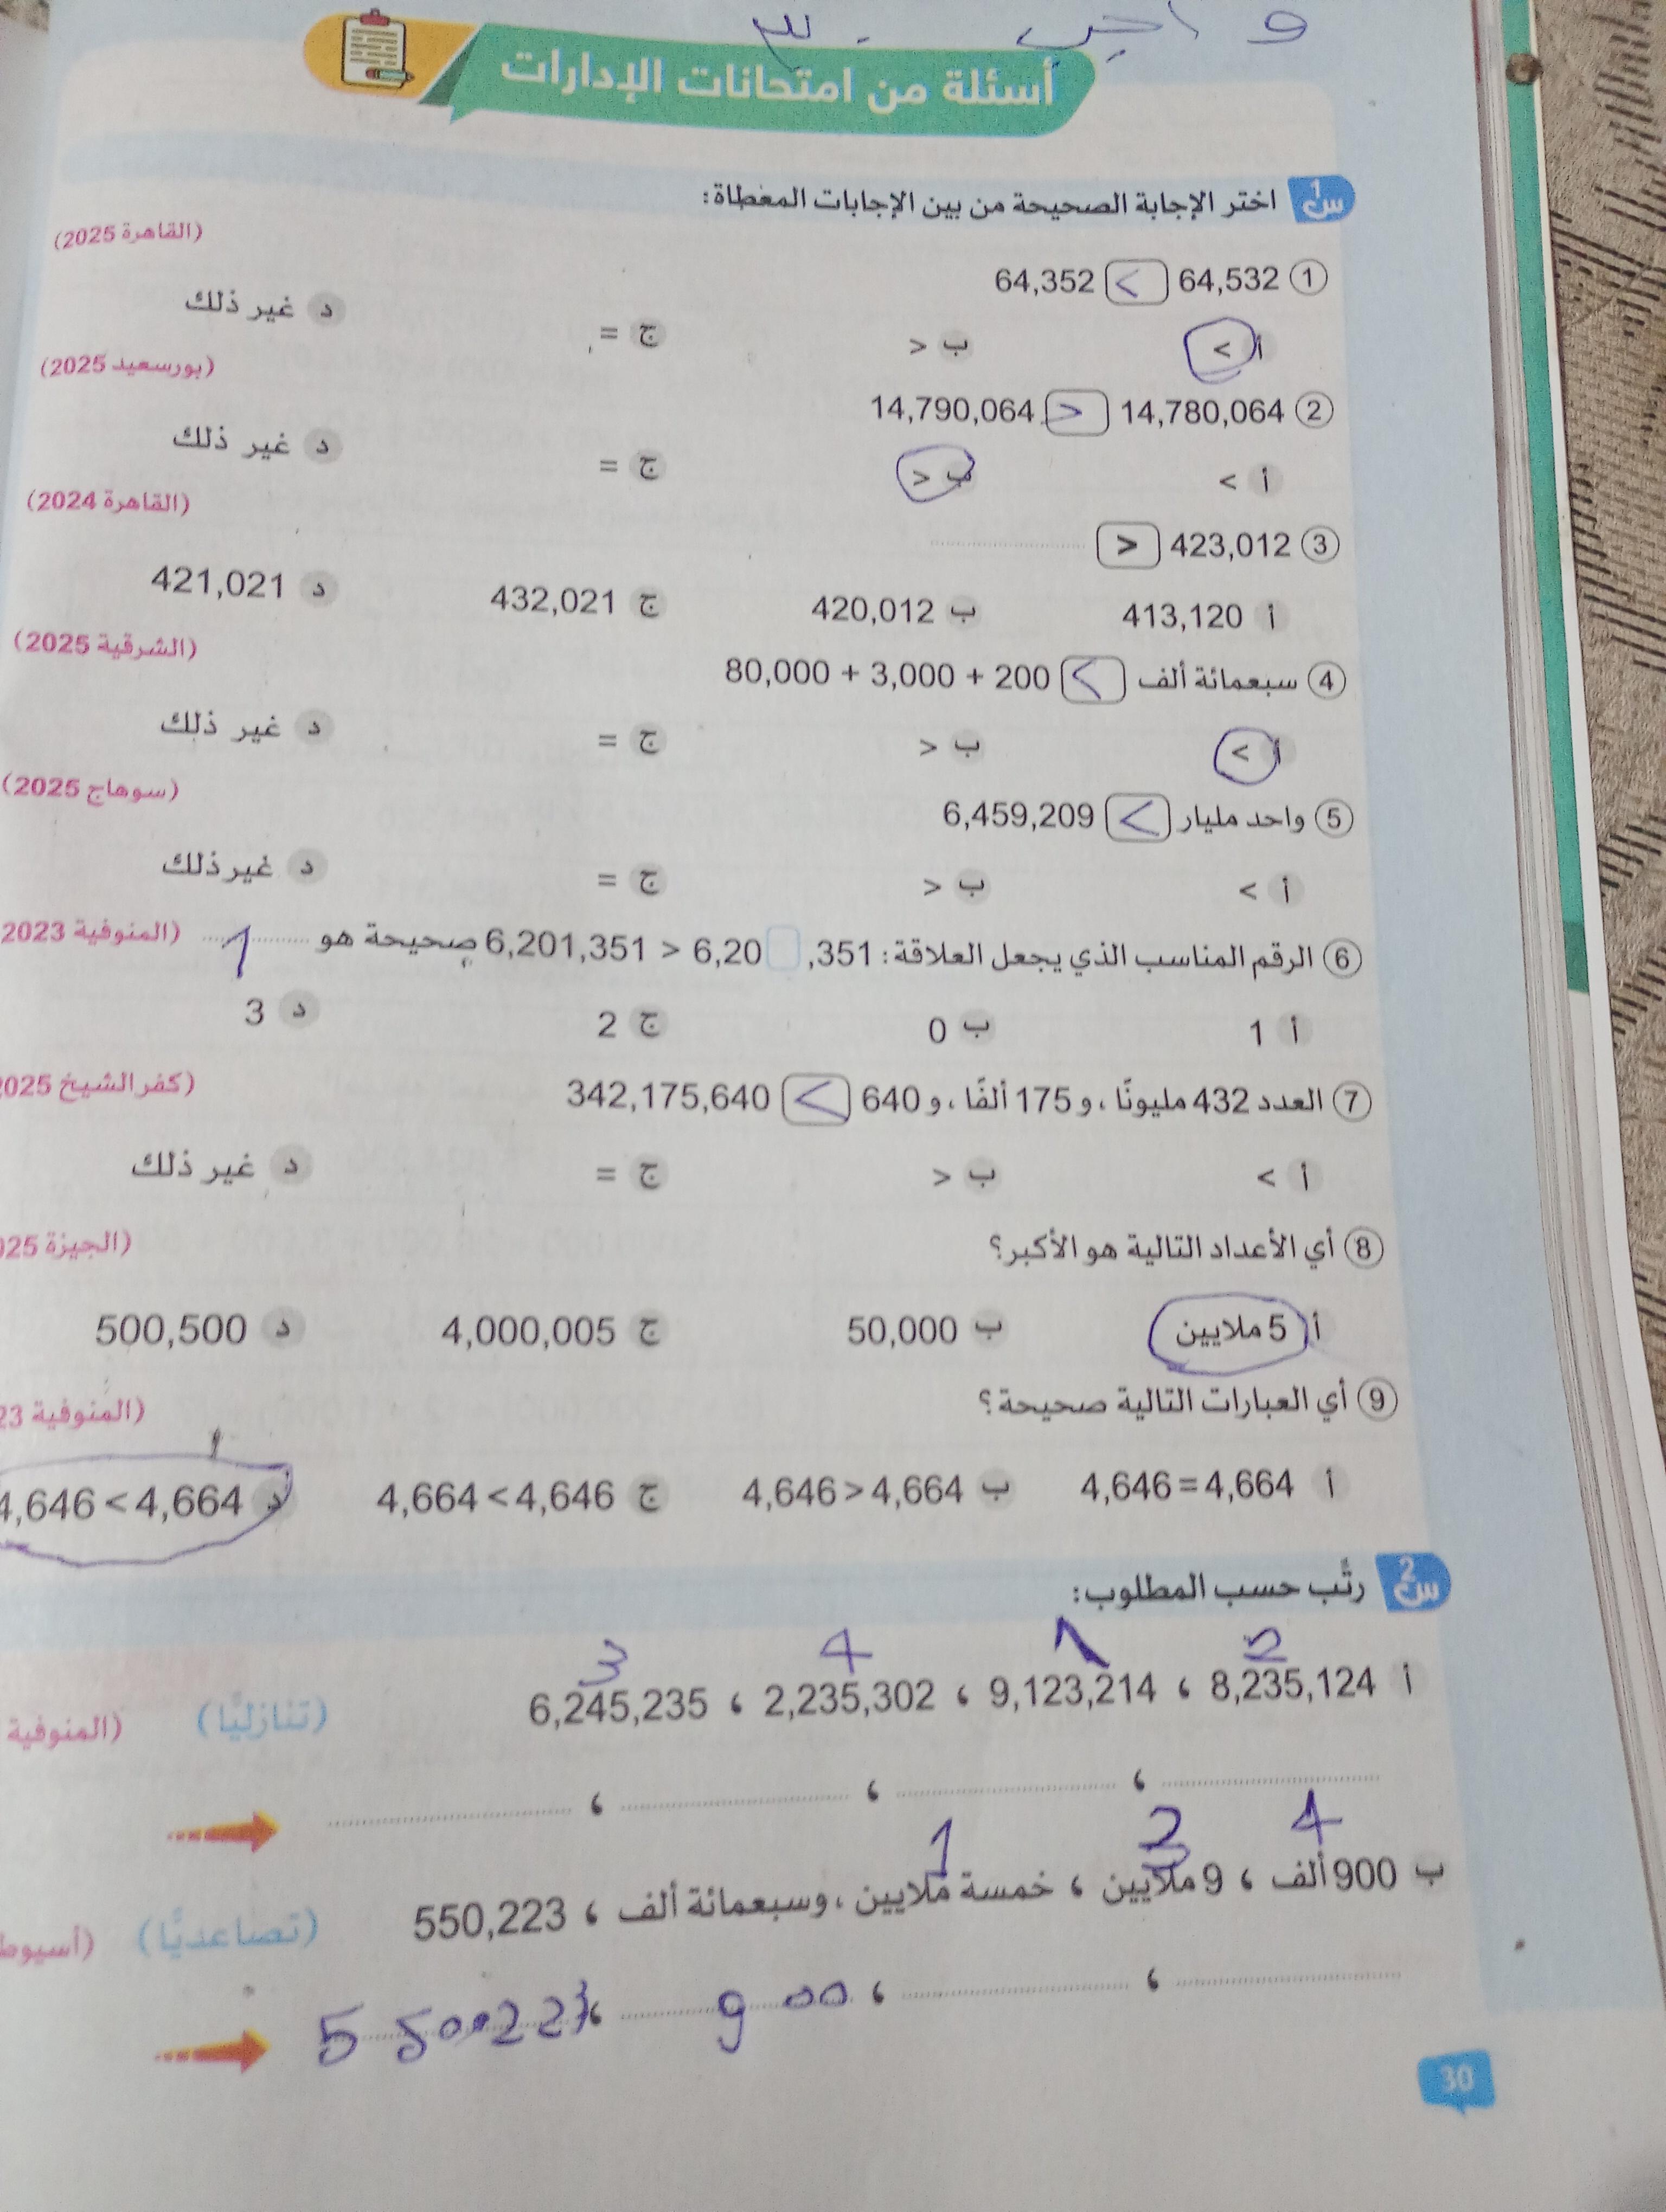 واجب
أسئلة من امتحانات الإدارات
س1 اختر الإجابة الصحيحة من بين الإجابات المعطاة:
(القاهرة 2025)
① 64,532 < 64,352
أ > ب < ج = د غير ذلك
(بورسعيد 2025)
② 14,780,064 > 14,790,064
أ > ب < ج = د غير ذلك
(القاهرة 2024)
③ 423,012 >
أ 413,120 ب 420,012 ج 432,021 د 421,021
(الشرقية 2025)
④ سبعمائة ألف < 80,000 + 3,000 + 200
أ > ب < ج = د غير ذلك
(سوهاج 2025)
⑤ واحد مليار < 6,459,209
أ > ب < ج = د غير ذلك
⑥ الرقم المناسب الذي يجعل العلاقة: 6,201,351 > 6,20 ,351 صحيحة هو 1 (المنوفية 2023
أ 1 ب 0 ج 2 د 3
(كفر الشيخ 025
⑦ العدد 432 مليونًا، و 175 ألفًا، و 640 < 342,175,640
أ > ب < ج = د غير ذلك
(الجيزة 025
⑧ أي الأعداد التالية هو الأكبر؟
أ 5 ملايين ب 50,000 ج 4,000,005 د 500,500
(المنوفية 23
⑨ أي العبارات التالية صحيحة؟
أ 4,646 = 4,664 ب 4,646 > 4,664 ج 4,664 < 4,646 د 4,646 < 4,664
س2 رتّب حسب المطلوب:
2 1 4 3
أ 8,235,124 ، 9,123,214 ، 2,235,302 ، 6,245,235 (تنازليًّا) (المنوفية
، ، ،
4 2 1
ب 900 ألف ، 9 ملايين ، خمسة ملايين، وسبعمائة ألف ، 550,223 (تصاعديًّا) (أسيوط
، ، 900 ،
30